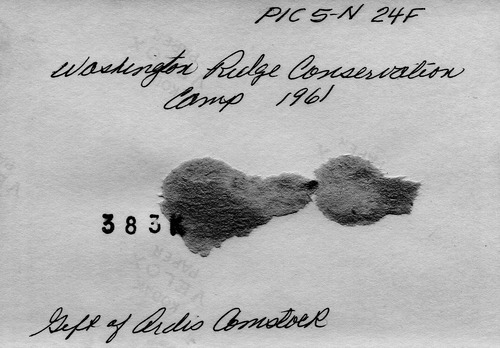 PIC 5-N 24F
Washington Ridge Conservation
Camp 1961
383K
Gift of Ardis Comstock